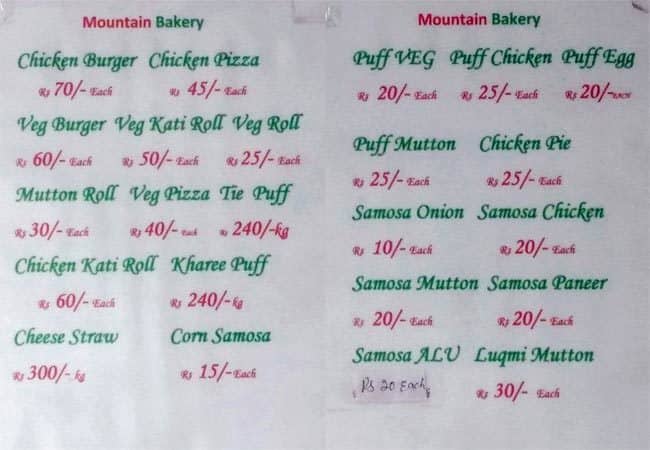 Mountain Bakery
Chicken Burger Chicken Pizza
Rs 70/- Each Rs 45/- Each
Veg Burger Veg Kati Roll Veg Roll
Rs 60/- Each Rs 50/- Each Rs 25/- Each
Mutton Roll Veg Pizza Tie Puff
Rs 30/- Each Rs 40/- Each Rs 240/-kg
Chicken Kati Roll Kharee Puff
Rs 60/- Each Rs 240/-kg
Cheese Straw Corn Samosa
Rs 300/- kg Rs 15/- Each
Mountain Bakery
Puff VEG Puff Chicken Puff Egg
Rs 20/- Each Rs 25/- Each Rs 20/-EACH
Puff Mutton Chicken Pie
Rs 25/- Each Rs 25/- Each
Samosa Onion Samosa Chicken
Rs 10/- Each Rs 20/- Each
Samosa Mutton Samosa Paneer
Rs 20/- Each Rs 20/- Each
Samosa ALU Luqmi Mutton
Rs 20 Each Rs 30/- Each